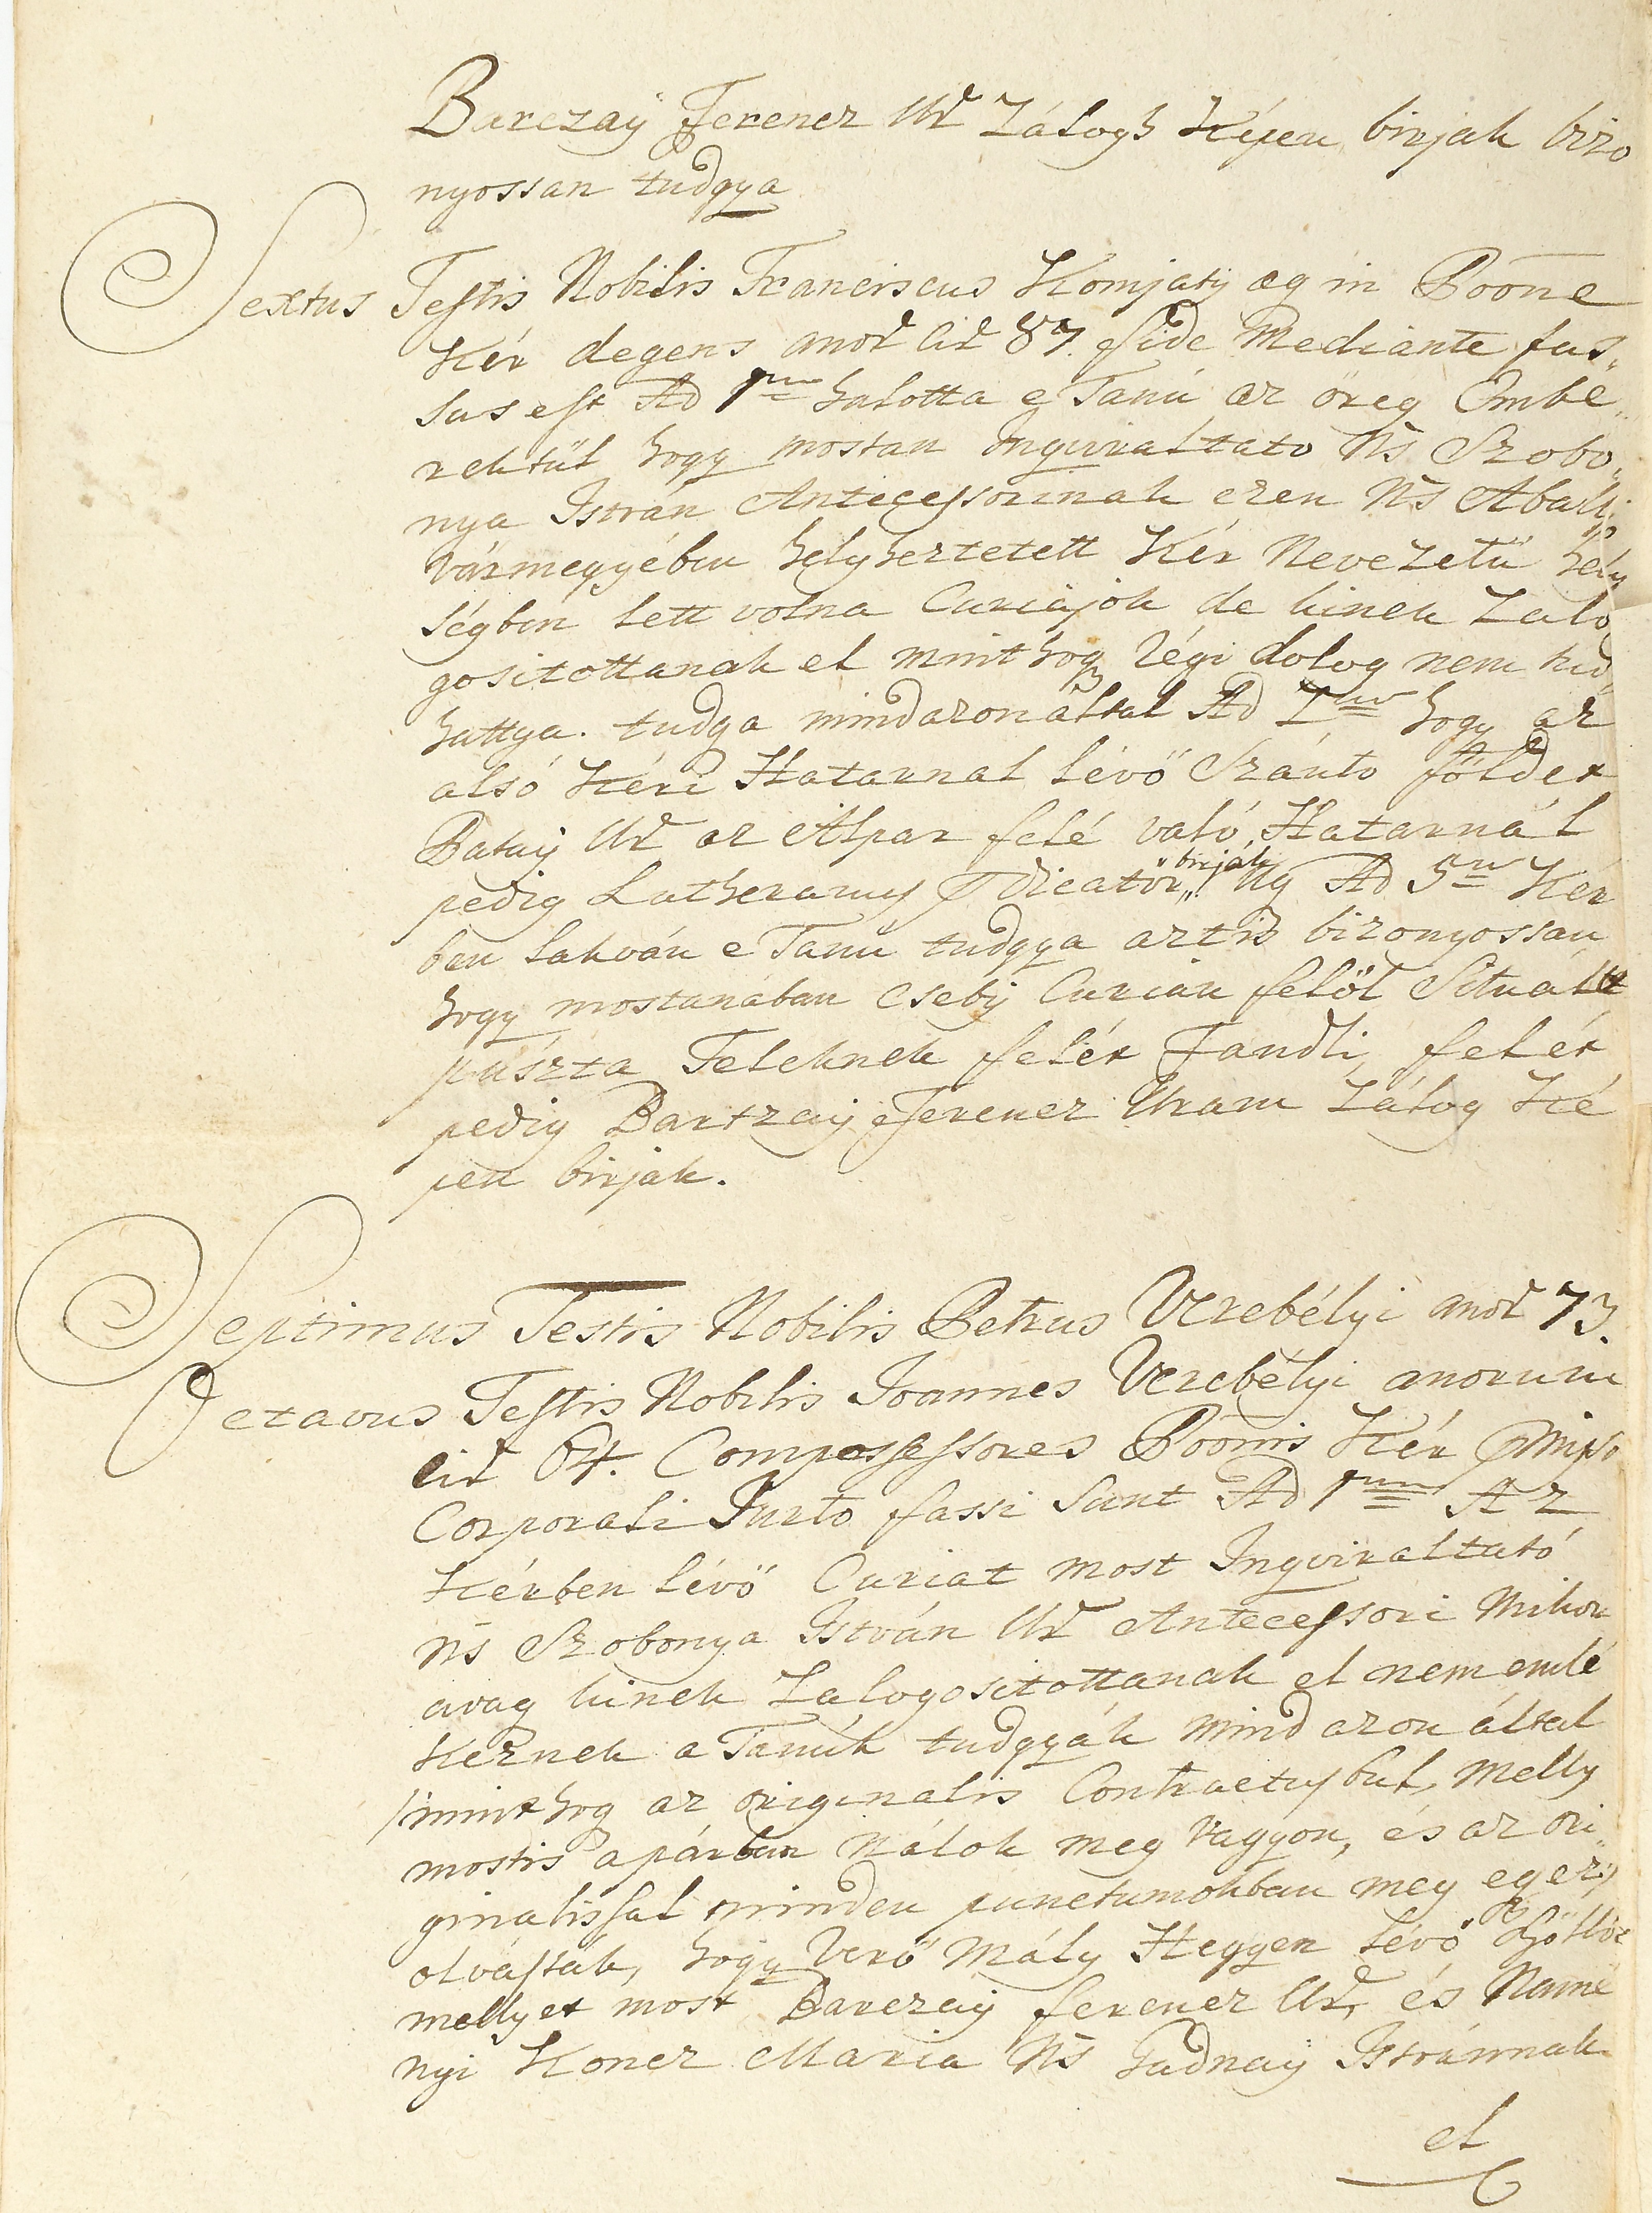 Barczaÿ Ferencz Ur Zálogh Képen birjak bizo
nyossan tudgya
Sextus Testis Nobilis Franciscus Komjatij æg in Poõne
Kér degens anor cir 87. fide Mediante fas,,
sus est Ad 1um halotta e Tanú az öreg Embe,,
rektűl hogy mostan Inquiraltato Ns Szobo,,
nya István Antecessorinak ezen Ns Abauj
Vármegyében helyheztetett Kér Nevezetü hely
ségben lett volna Curiájok de kinek Zalo
gositottanak el mint hogy régi dolog nem tud
hattya. tudga mindazonáltal Ad 2um hogy az
alsó Kéri Hatarnal lévő Szántó földet
Pataÿ Ur az Alpar felé való, Hatarnál
pedig Lutheranus Prædicator birják Ugy Ad 3um Kér
ben lakván e Tanú tudgya aztis bizonyossan
hogy mostanában Csebÿ Curián felöl Situalt
puszta Teleknek felét Fandli, felét
pedig Bartzaÿ Ferencz Uram Zálog Ké
pen birjak.
Septimus Testis Nobilis Petrus Verebélyi anor 73.
Octavus Testis Nobilis Joannes Verebélyi anorum
cir 64. Compossessores Poõnis Kér
Corporali Jurto fassi Sunt Ad 1um Az
Kérben lévő Curiat most Inqviraltató
Ns Szobonya István Ur Antecessori Mikor
avag kinek Zalogositottanak el nem emlé
keznek a Tanúk tudgyák mind azon által
/mint hog az originalis Contractusbul, Melly
mostis apárban Nálok meg Vagyon, és az ori,,
ginalissal minden punctumokban meg egyez/
olvasták, hogy Verö Mály Hegyen lévő Szöllöt
mellyet most Barczaÿ ferencz Ur, és Namé
nyi Koncz Maria Ns Fadnaÿ Istvánnak
el